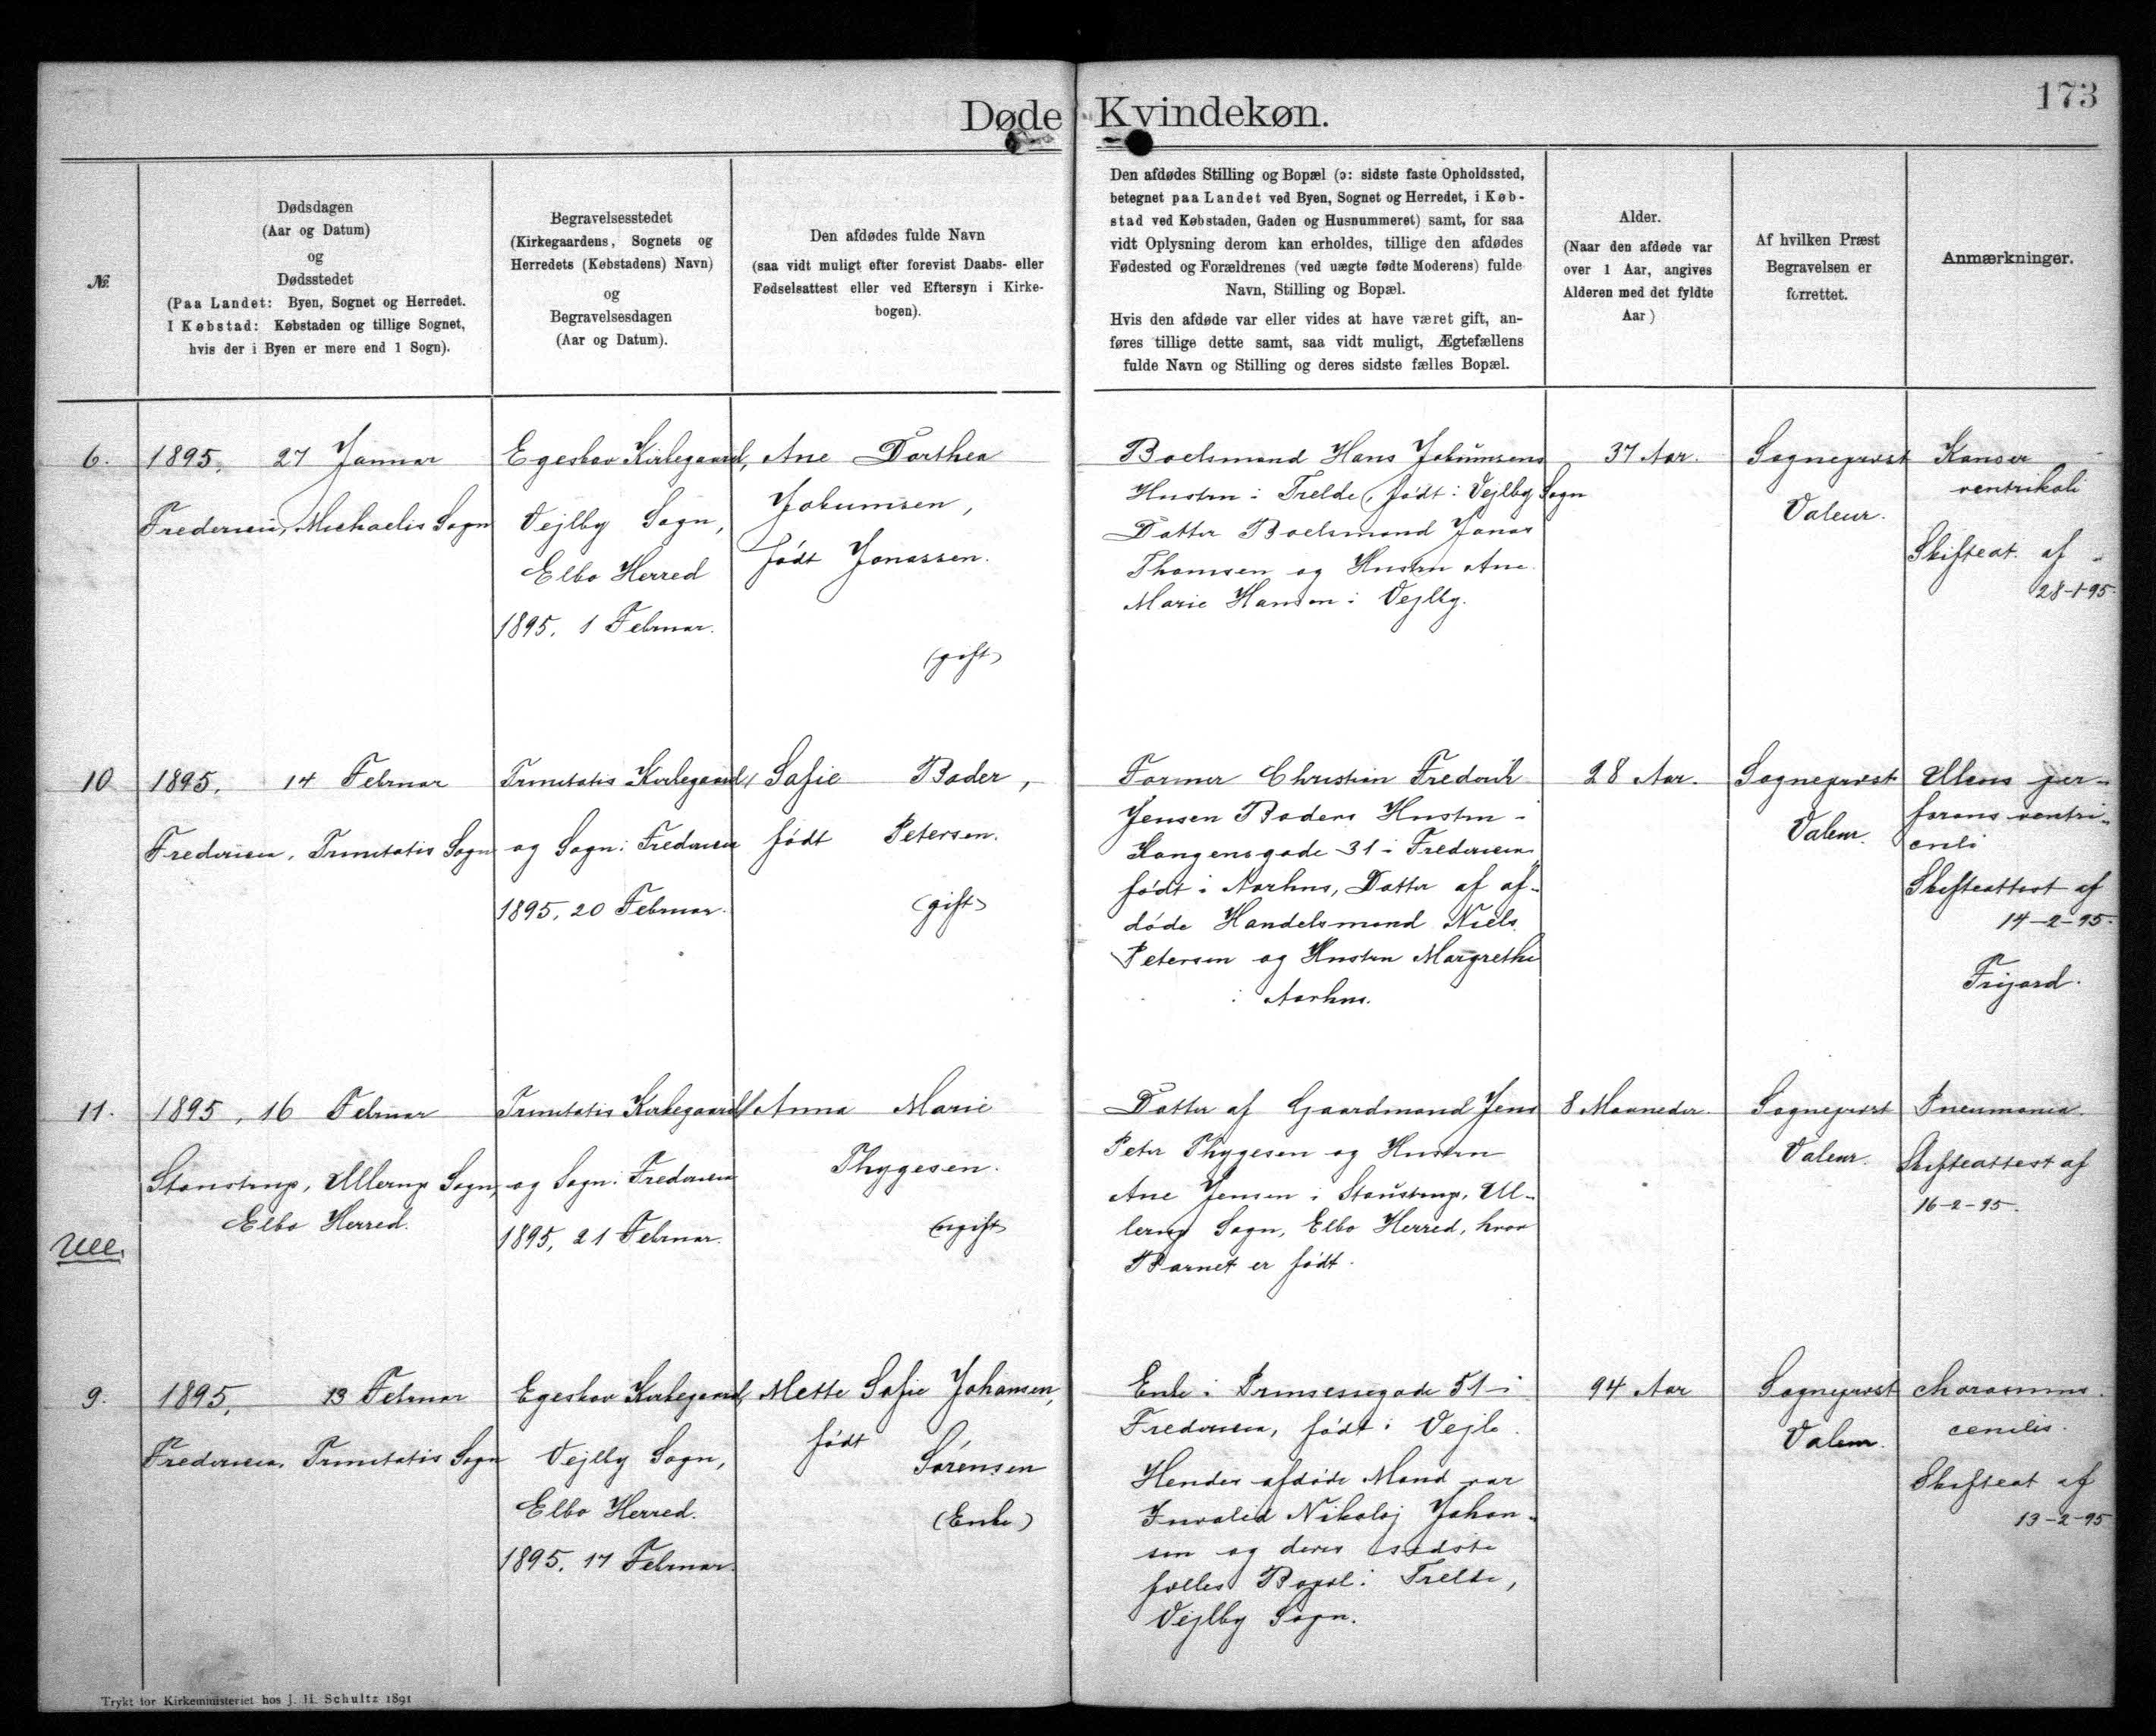 173
Døde Kvindekøn.
№
Dødsdagen
(Aar og Datum)
og
Dødsstedet
(Paa Landet: Byen, Sognet og Herredet.
I Købstad: Købstaden og tillige Sognet,
hvis der i Byen er mere end 1 Sogn).
Begravelsesstedet
(Kirkegaardens, Sognets og
Herredets (Købstadens) Navn)
og
Begravelsesdagen
(Aar og Datum).
Den afdødes fulde Navn
(saa vidt muligt efter forevist Daabs- eller
Fødselsattest eller ved Eftersyn i Kirke-
bogen).
Den afdødes Stilling og Bopæl (ɔ: sidste faste Opholdssted,
betegnet paa Landet ved Byen, Sognet og Herredet, i Køb-
stad ved Købstaden, Gaden og Husnummeret) samt, for saa
vidt Oplysning derom kan erholdes, tillige den afdødes
Fødested og Forældrenes (ved uægte fødte Moderens) fulde
Navn, Stilling og Bopæl.
Hvis den afdøde var eller vides at have været gift, an-
føres tillige dette samt, saa vidt muligt, Ægtefællens
fulde Navn og Stilling og deres sidste fælles Bopæl.
Alder.
(Naar den afdøde var
over 1 Aar, angives
Alderen med det fyldte
Aar)
Af hvilken Præst
Begravelsen er
forrettet.
Anmærkninger.
6.
1895, 27 Januar
Fredericia, Michaelis Sogn
Egeskov Kirkegaard,
Vejlby Sogn,
Elbo Herred
1895, 1 Februar.
Ane Dorthea
Jokumsen,
født Jonassen.
(gift)
Boelsmand Hans Jokumsens
Hustru i Trelde, født i Vejlby Sogn
Datter Boelsmand Jonas
Thomsen og Hustru Ane
Marie Hansen i Vejlby.
37 Aar.
Sognepræst
Valeur.
Kanser
ventrikoli
Skifteat. af
28-1-95.
10
1895, 14 Februar
Fredericia, Trinitatis Sogn
Trinitatis Kirkegaard
og Sogn i Fredericia
1895, 20 Februar.
Sofie Bader,
født Petersen.
(gift)
Former Christian Frederik
Jensen Baders Hustru i
Kongensgade 31 i Fredericia
født i Aarhus, Datter af af-
døde Handelsmand Niels
Petersen og Hustru Margrethe
i Aarhus.
28 Aar.
Sognepræst
Valeur.
Ulcus per-
forans ventri-
culi
Skifteattest af
14-2-95.
Frijord.
11.
1895, 16 Februar
Stoustrup, Ullerup Sogn,
Elbo Herred.
Ull.
Trinitatis Kirkegaard
og Sogn i Fredericia
1895, 21 Februar.
Anna Marie
Thygesen.
(ugift)
Datter af Gaardmand Jens
Peter Thygesen og Hustru
Ane Jensen i Stoustrup, Ul-
lerup Sogn, Elbo Herred, hvor
Barnet er født.
8 Maaneder.
Sognepræst
Valeur.
Pneumonia.
Skifteattest af
16-2-95.
9.
1895, 13 Februar
Fredericia, Trinitatis Sogn
Egeskov Kirkegaard,
Vejlby Sogn,
Elbo Herred.
1895, 17 Februar.
Mette Sofie Johansen,
født
Sørensen
(Enke)
Enke i Prinsessegade 51 i
Fredericia, født i Vejle.
Hendes afdøde Mand var
Invalid Nikolaj Johan-
sen og deres sidste
fælles Bopæl i Trelde,
Vejlby Sogn.
94 Aar
Sognepræst
Valeur.
Marasmus
cenilis.
Skifteat af
13-2-95
Trykt for Kirkeministeriet hos J. H. Schultz 1891